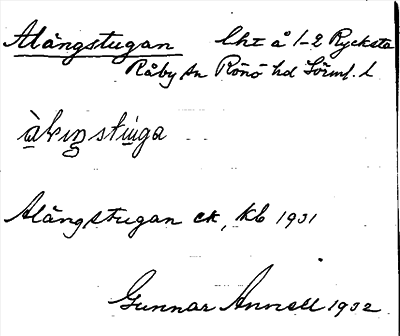 Alängstugan Lht å 1-2 Rycksta
Råby sn Rönö hd Sörml. l
Alängstugan ek, kb 1931
Gunnar Annell 1932